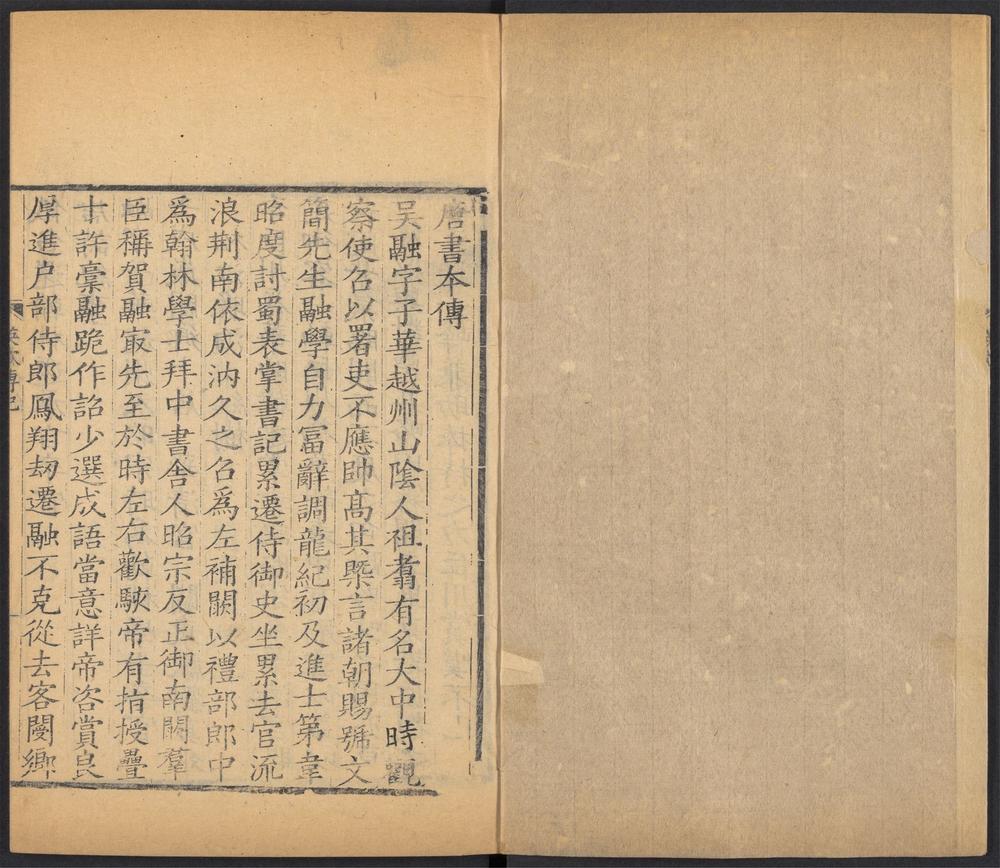 唐書本傳
吴融字子華越州山陰人祖翥有名大中時觀
察使召以署吏不應帥髙其槩言諸朝賜號文
簡先生融學自力富辭調龍紀初及進士第韋
昭度討蜀表掌書記累遷侍御史坐累去官流
浪荆南依成汭久之召爲左補闕以禮部郎中
爲翰林學士拜中書舎人昭宗反正御南闕羣
臣稱賀融㝡先至於時左右歡駭帝有指授疊
十許稾融跪作詔少選成語當意詳帝咨賞良
厚進户部侍郎鳳翔刼遷融不克從去客閿鄉
英